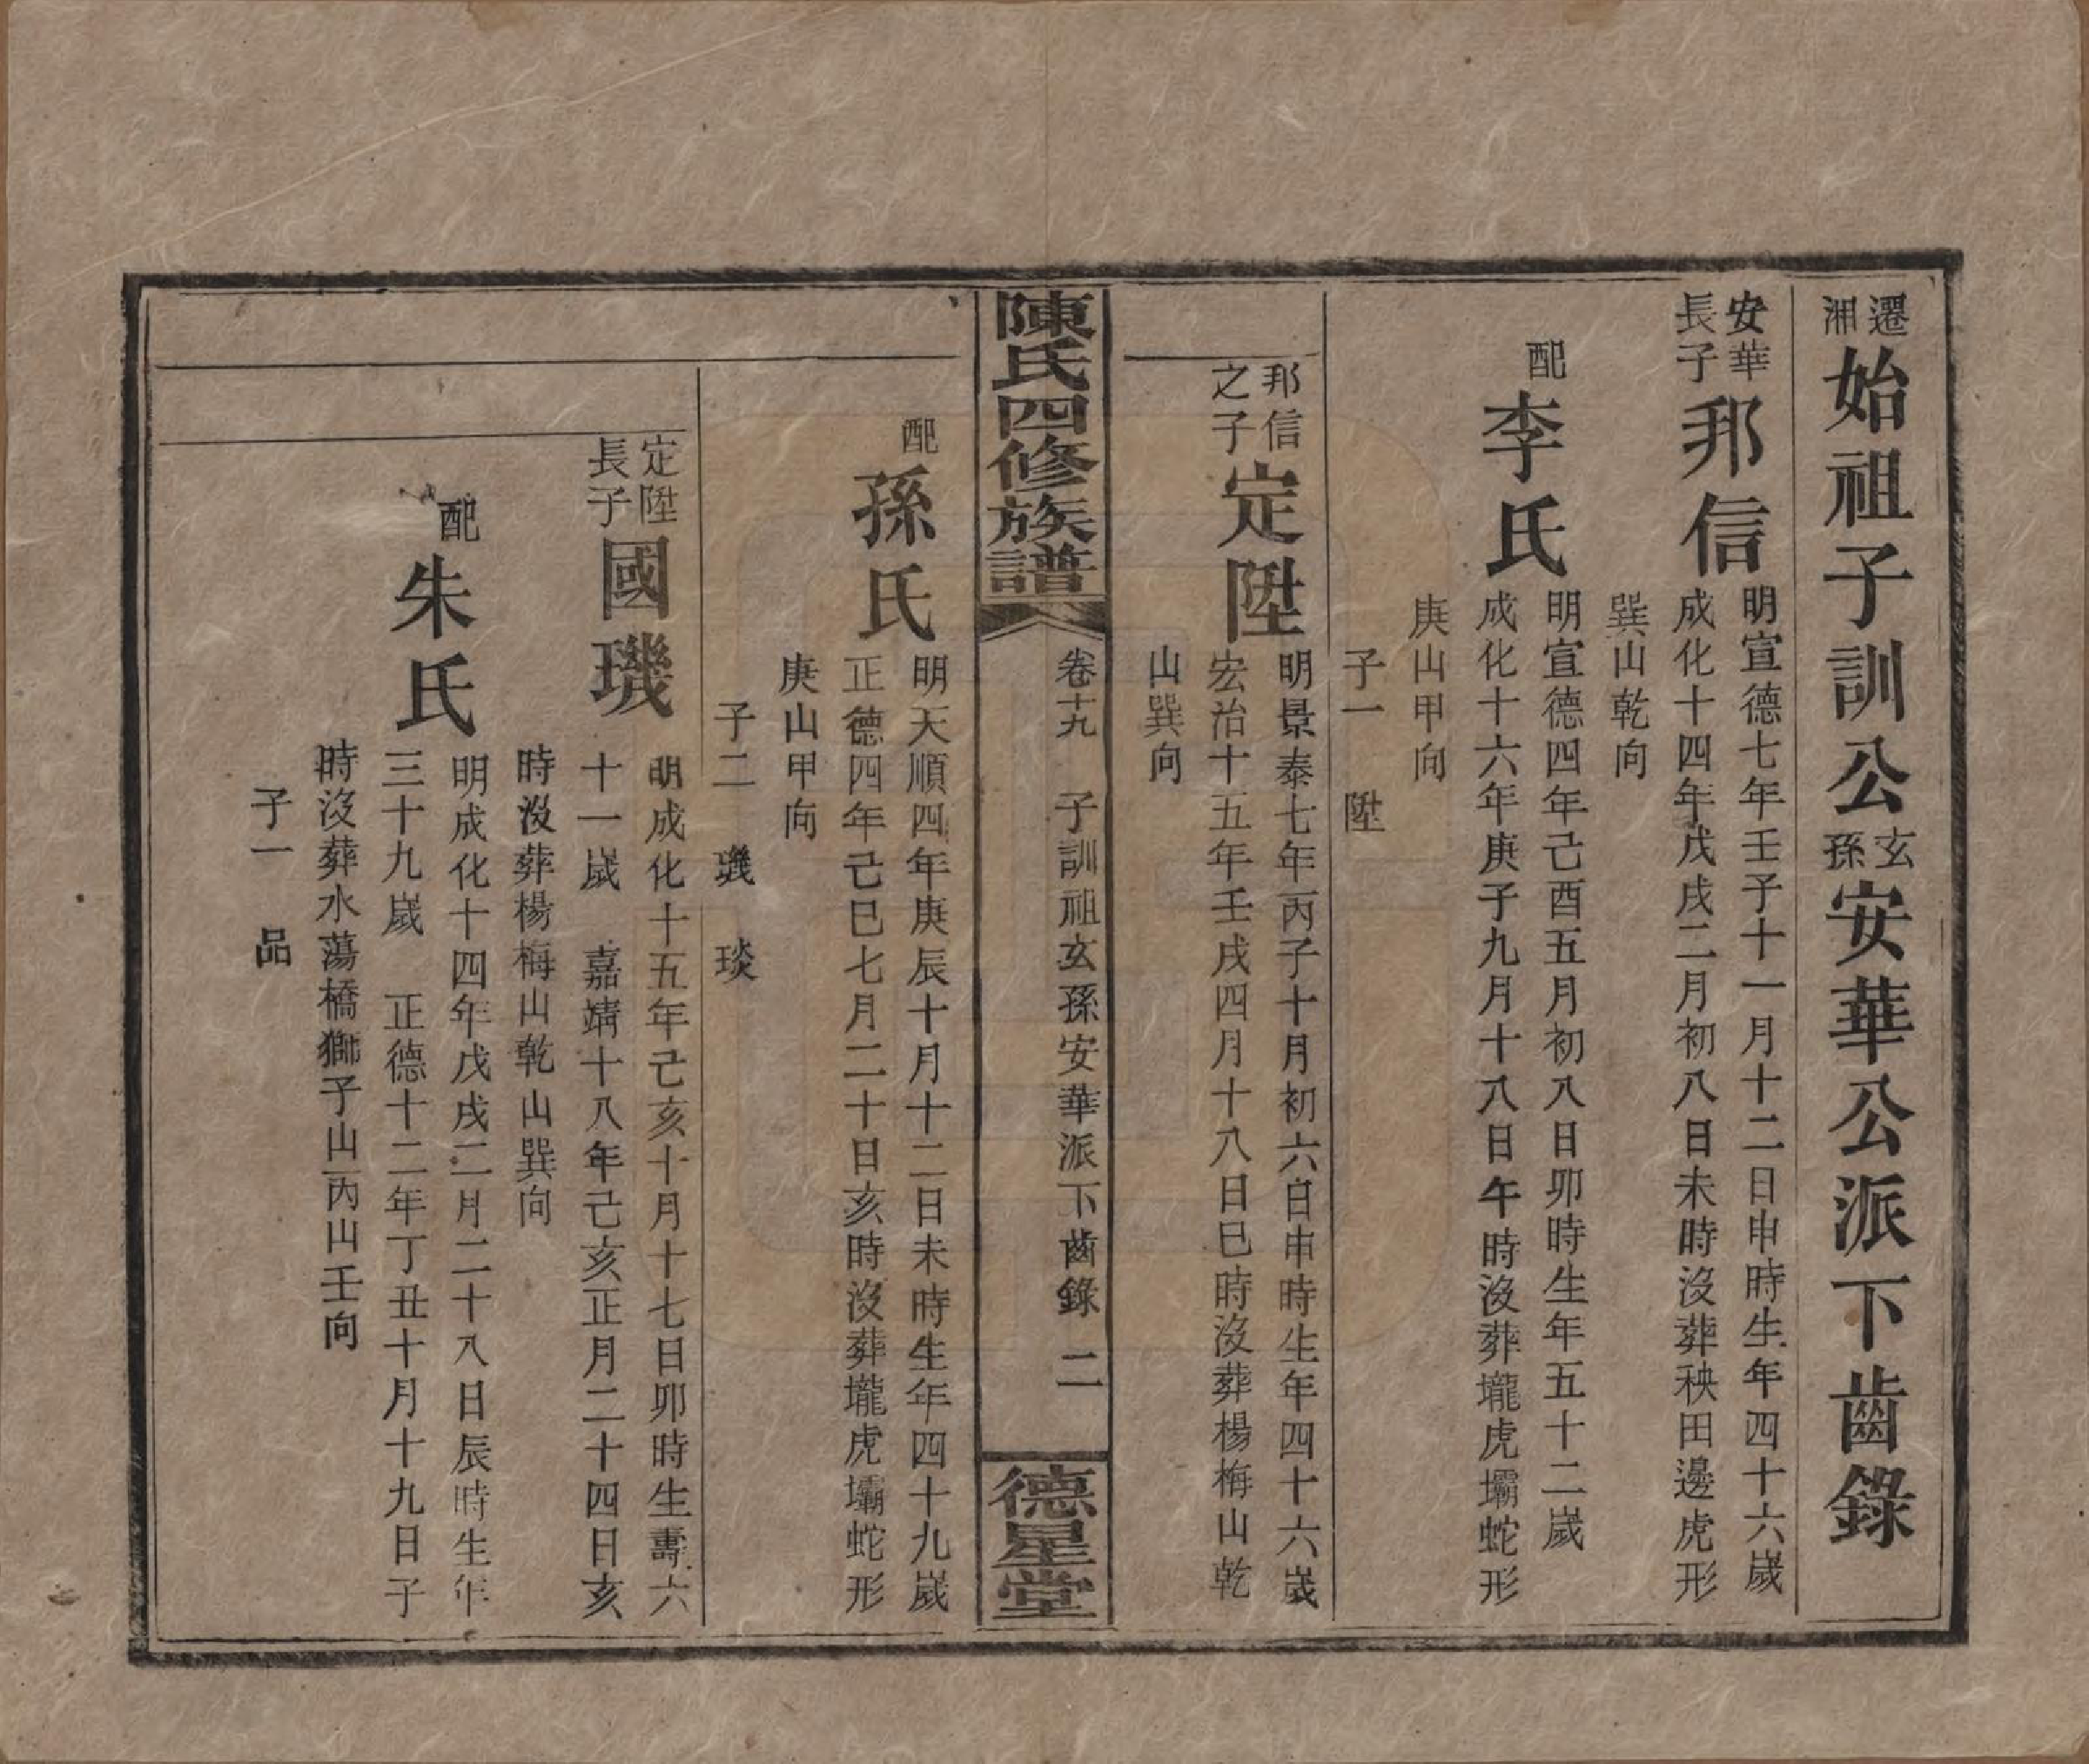 遷湘始祖子訓公玄孫安華公派下齒錄
安華長子邦信
明宣德七年壬子十一月十二日申時生年四十六嵗
成化十四年戊戌二月初八日未時沒葬秧田邊虎形
巽山乾向
配李氏
明宣德四年己酉五月初八日卯時生年五十二嵗
成化十六年庚子九月十八日午時沒葬壠虎壩蛇形
庚山甲向
子一 陞
邦信之子定陞
明景泰七年丙子十月初六日申時生年四十六嵗
宏治十五年壬戌四月十八日巳時沒葬楊梅山乾
山巽向
陳氏四修族譜
卷十九 子訓祖玄孫安華派下齒錄 二
德星堂
配孫氏
明天順四年庚辰十月十二日未時生年四十九嵗
正德四年己巳七月二十日亥時沒葬壠虎壩蛇形
庚山甲向
子二 璣 琰
定陞長子國璣
明成化十五年己亥十月十七日卯時生壽六
十一嵗 嘉靖十八年己亥正月二十四日亥
時沒葬楊梅山乾山巽向
配朱氏
明成化十四年戊戌二月二十八日辰時生年
三十九嵗 正德十二年丁丑十月十九日子
時沒葬水蕩橋獅子山丙山壬向
子一 品